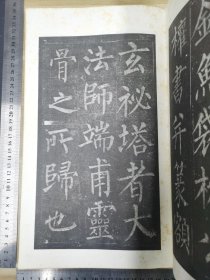 玄秘塔者大
法師端甫靈
骨之所歸也
金魚袋柳
權書并篆額